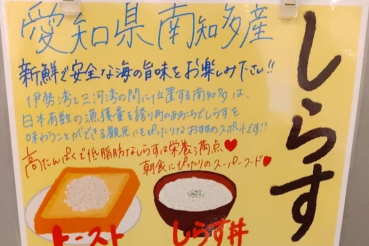 愛知県南知多産
新鮮で安全な海の旨味をお楽しみ下さい!!
伊勢湾と三河湾の間に位置する南知多は、
日本有数の漁獲量を誇り町のあちこちでしらすを
味わうことができる観光にもぴったりなおすすめスポットです!!
高たんぱくで低脂肪なしらすは栄養満点♥
朝食にぴったりのスーパーフード♥
しらす
トースト
しらす丼